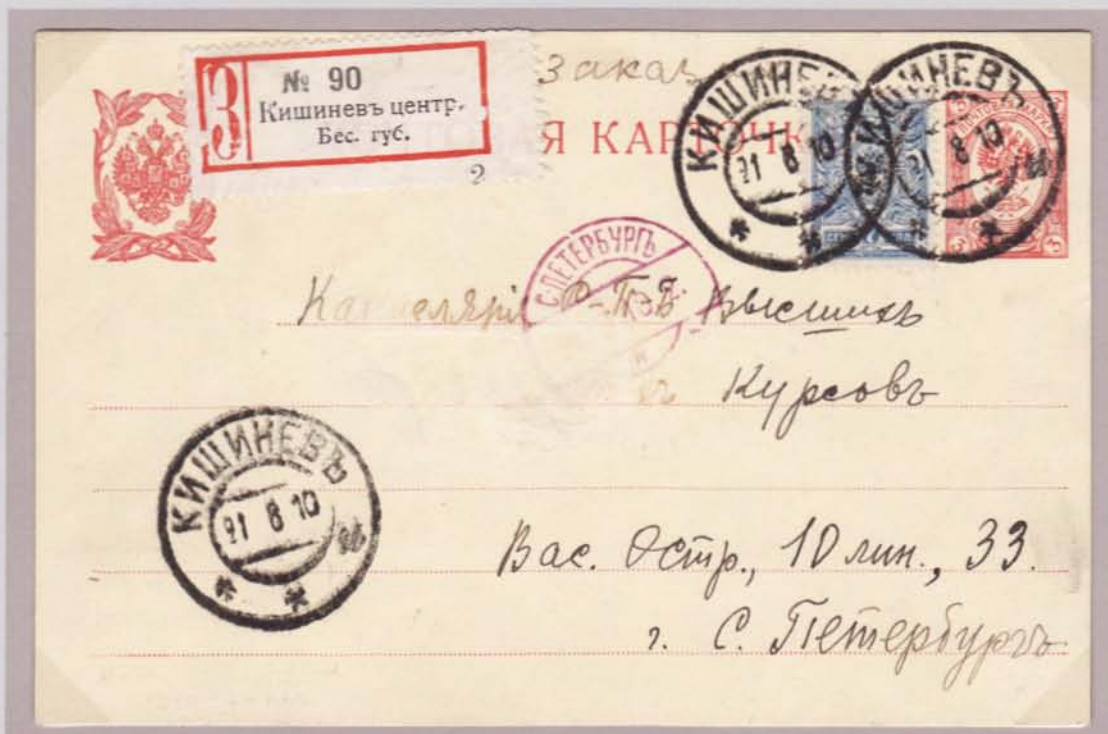 заказ
№ 90
З Кишиневъ центр.
Бес. губ.
2
КАРТОЧК
КИШИНЕВЪ
21 8 10
КИШИНЕВЪ
21 8 10
С.ПЕТЕРБУРГЪ
Канцелярія С-П-Б Высшихъ
Курсовъ
КИШИНЕВЪ
21 8 10
Вас. Остр., 10 лин., 33.
г. С. Петербургъ